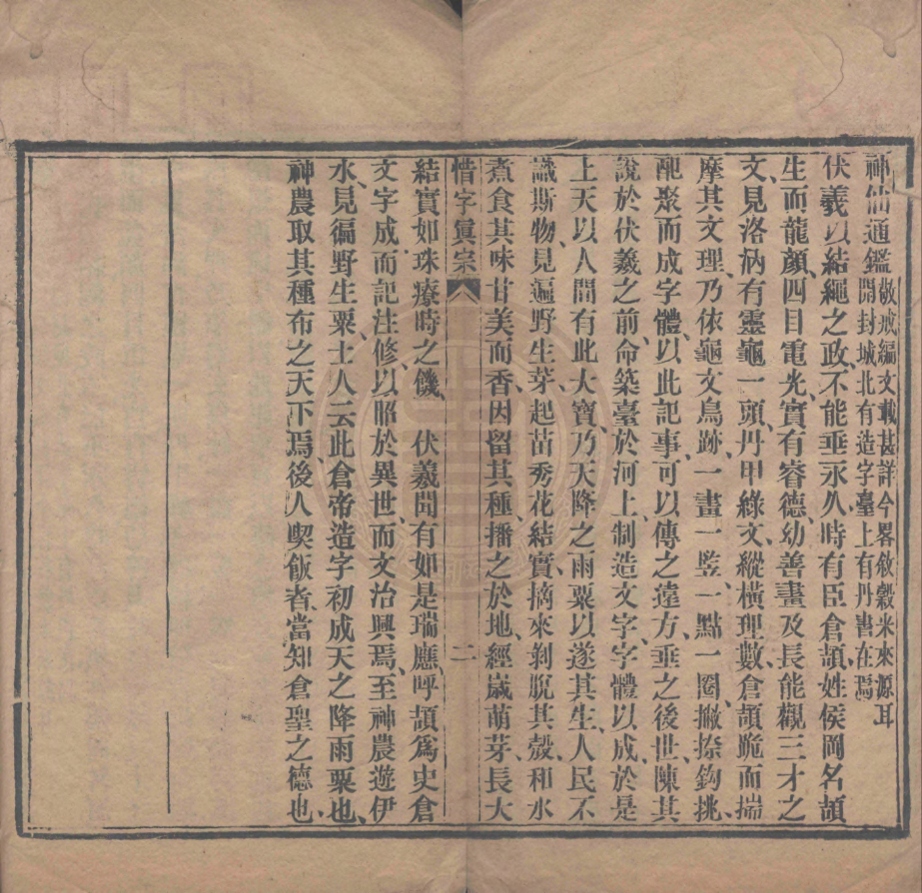 神仙通鑑
敬戒編文載甚詳今畧敘穀米來源耳
開封城北有造字臺上有丹書在焉
伏羲以結繩之政不能垂永久時有臣倉頡姓侯岡名頡
生而龍顏四目電光實有睿德幼善畫及長能觀三才之
文見洛汭有靈龜一頭丹甲綠文縱橫理數倉頡跪而揣
摩其文理乃依龜文鳥跡一畫一竪一點一圈撇捺鈎挑
配聚而成字體以此記事可以傳之遠方垂之後世陳其
說於伏羲之前命築臺於河上制造文字字體以成於是
上天以人間有此大寶乃天降之雨粟以遂其生人民不
識斯物見遍野生芽起苗秀花結實摘來剝脫其殼和水
煮食其味甘美而香因留其種播之於地經歲萌芽長大
惜字眞宗
二
結實如珠療時之饑　伏羲聞有如是瑞應呼頡爲史倉
文字成而記注修以昭於異世而文治興焉至神農遊伊
水見徧野生粟士人云此倉帝造字初成天之降雨粟也
神農取其種布之天下焉後人喫飯者當知倉聖之德也